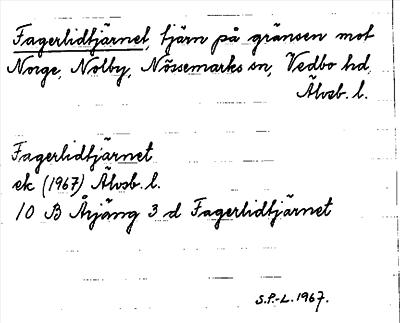 Fagerlidtjärnet, tjärn på gränsen mot
Norge, Nolby, Nössemarks sn, Vedbo hd,
Älvsb. l.
Fagerlidtjärnet
ek (1967) Älvsb. l.
10 B Årjäng 3 d Fagerlidtjärnet
S.P.-L. 1967.